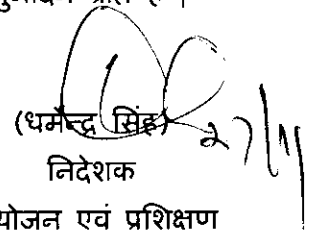 (धर्मेन्द्र सिंह)
27/11
निदेशक
योजन एवं प्रशिक्षण